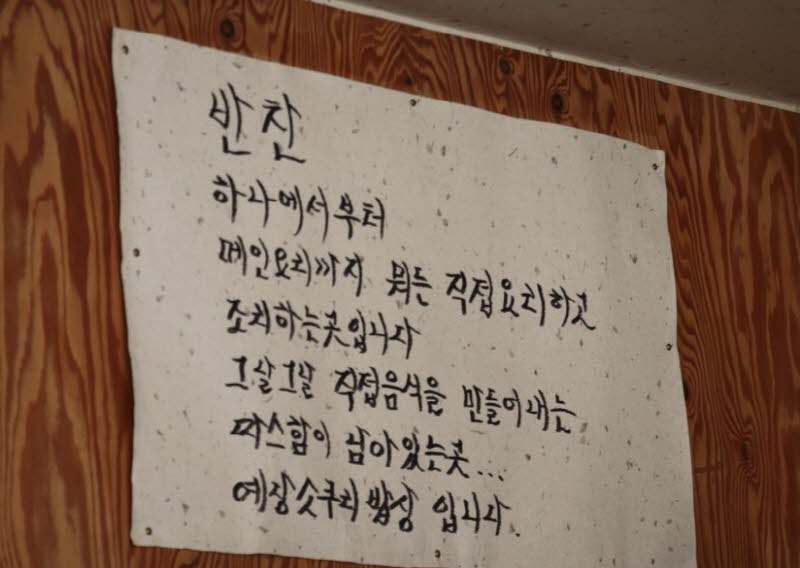 반찬
하나에서부터
메인요리까지 뭐든 직접요리하고
조리하는곳입니다
그날그날 직접음식을 만들어내는
따스함이 남아있는곳...
예장소쿠리밥상 입니다.